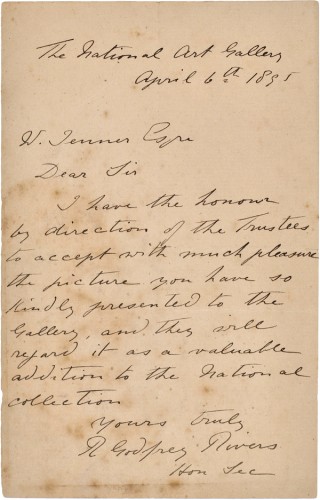 The National Art Gallery
April 6th 1895
W. Jenner Esqre
Dear Sir
I have the honour
by direction of the Trustees
to accept with much pleasure
the picture you have so
kindly presented to the
Gallery, and they will
regard it as a valuable
addition to the National
collection
Yours truly
R Godfrey Rivers
Hon Sec